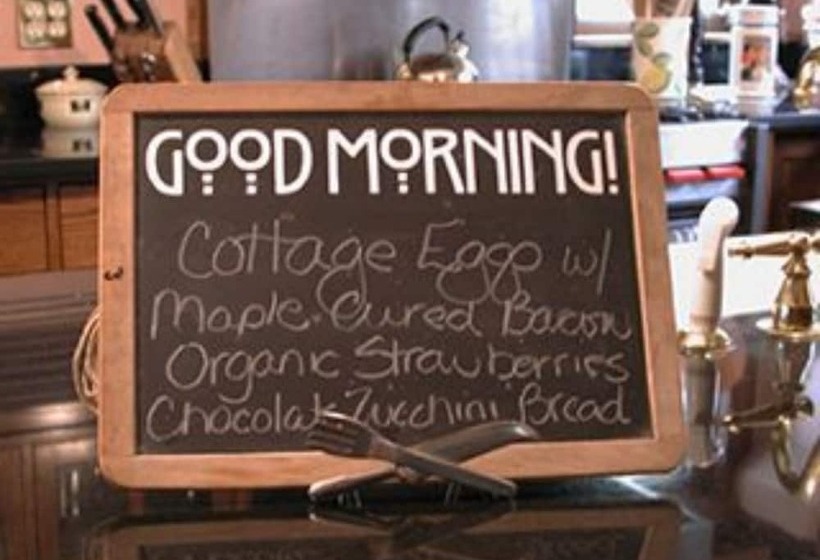 GOOD MORNING!
Cottage Eggs w/
Maple Cured Bacon
Organic Strawberries
Chocolate Zucchini Bread